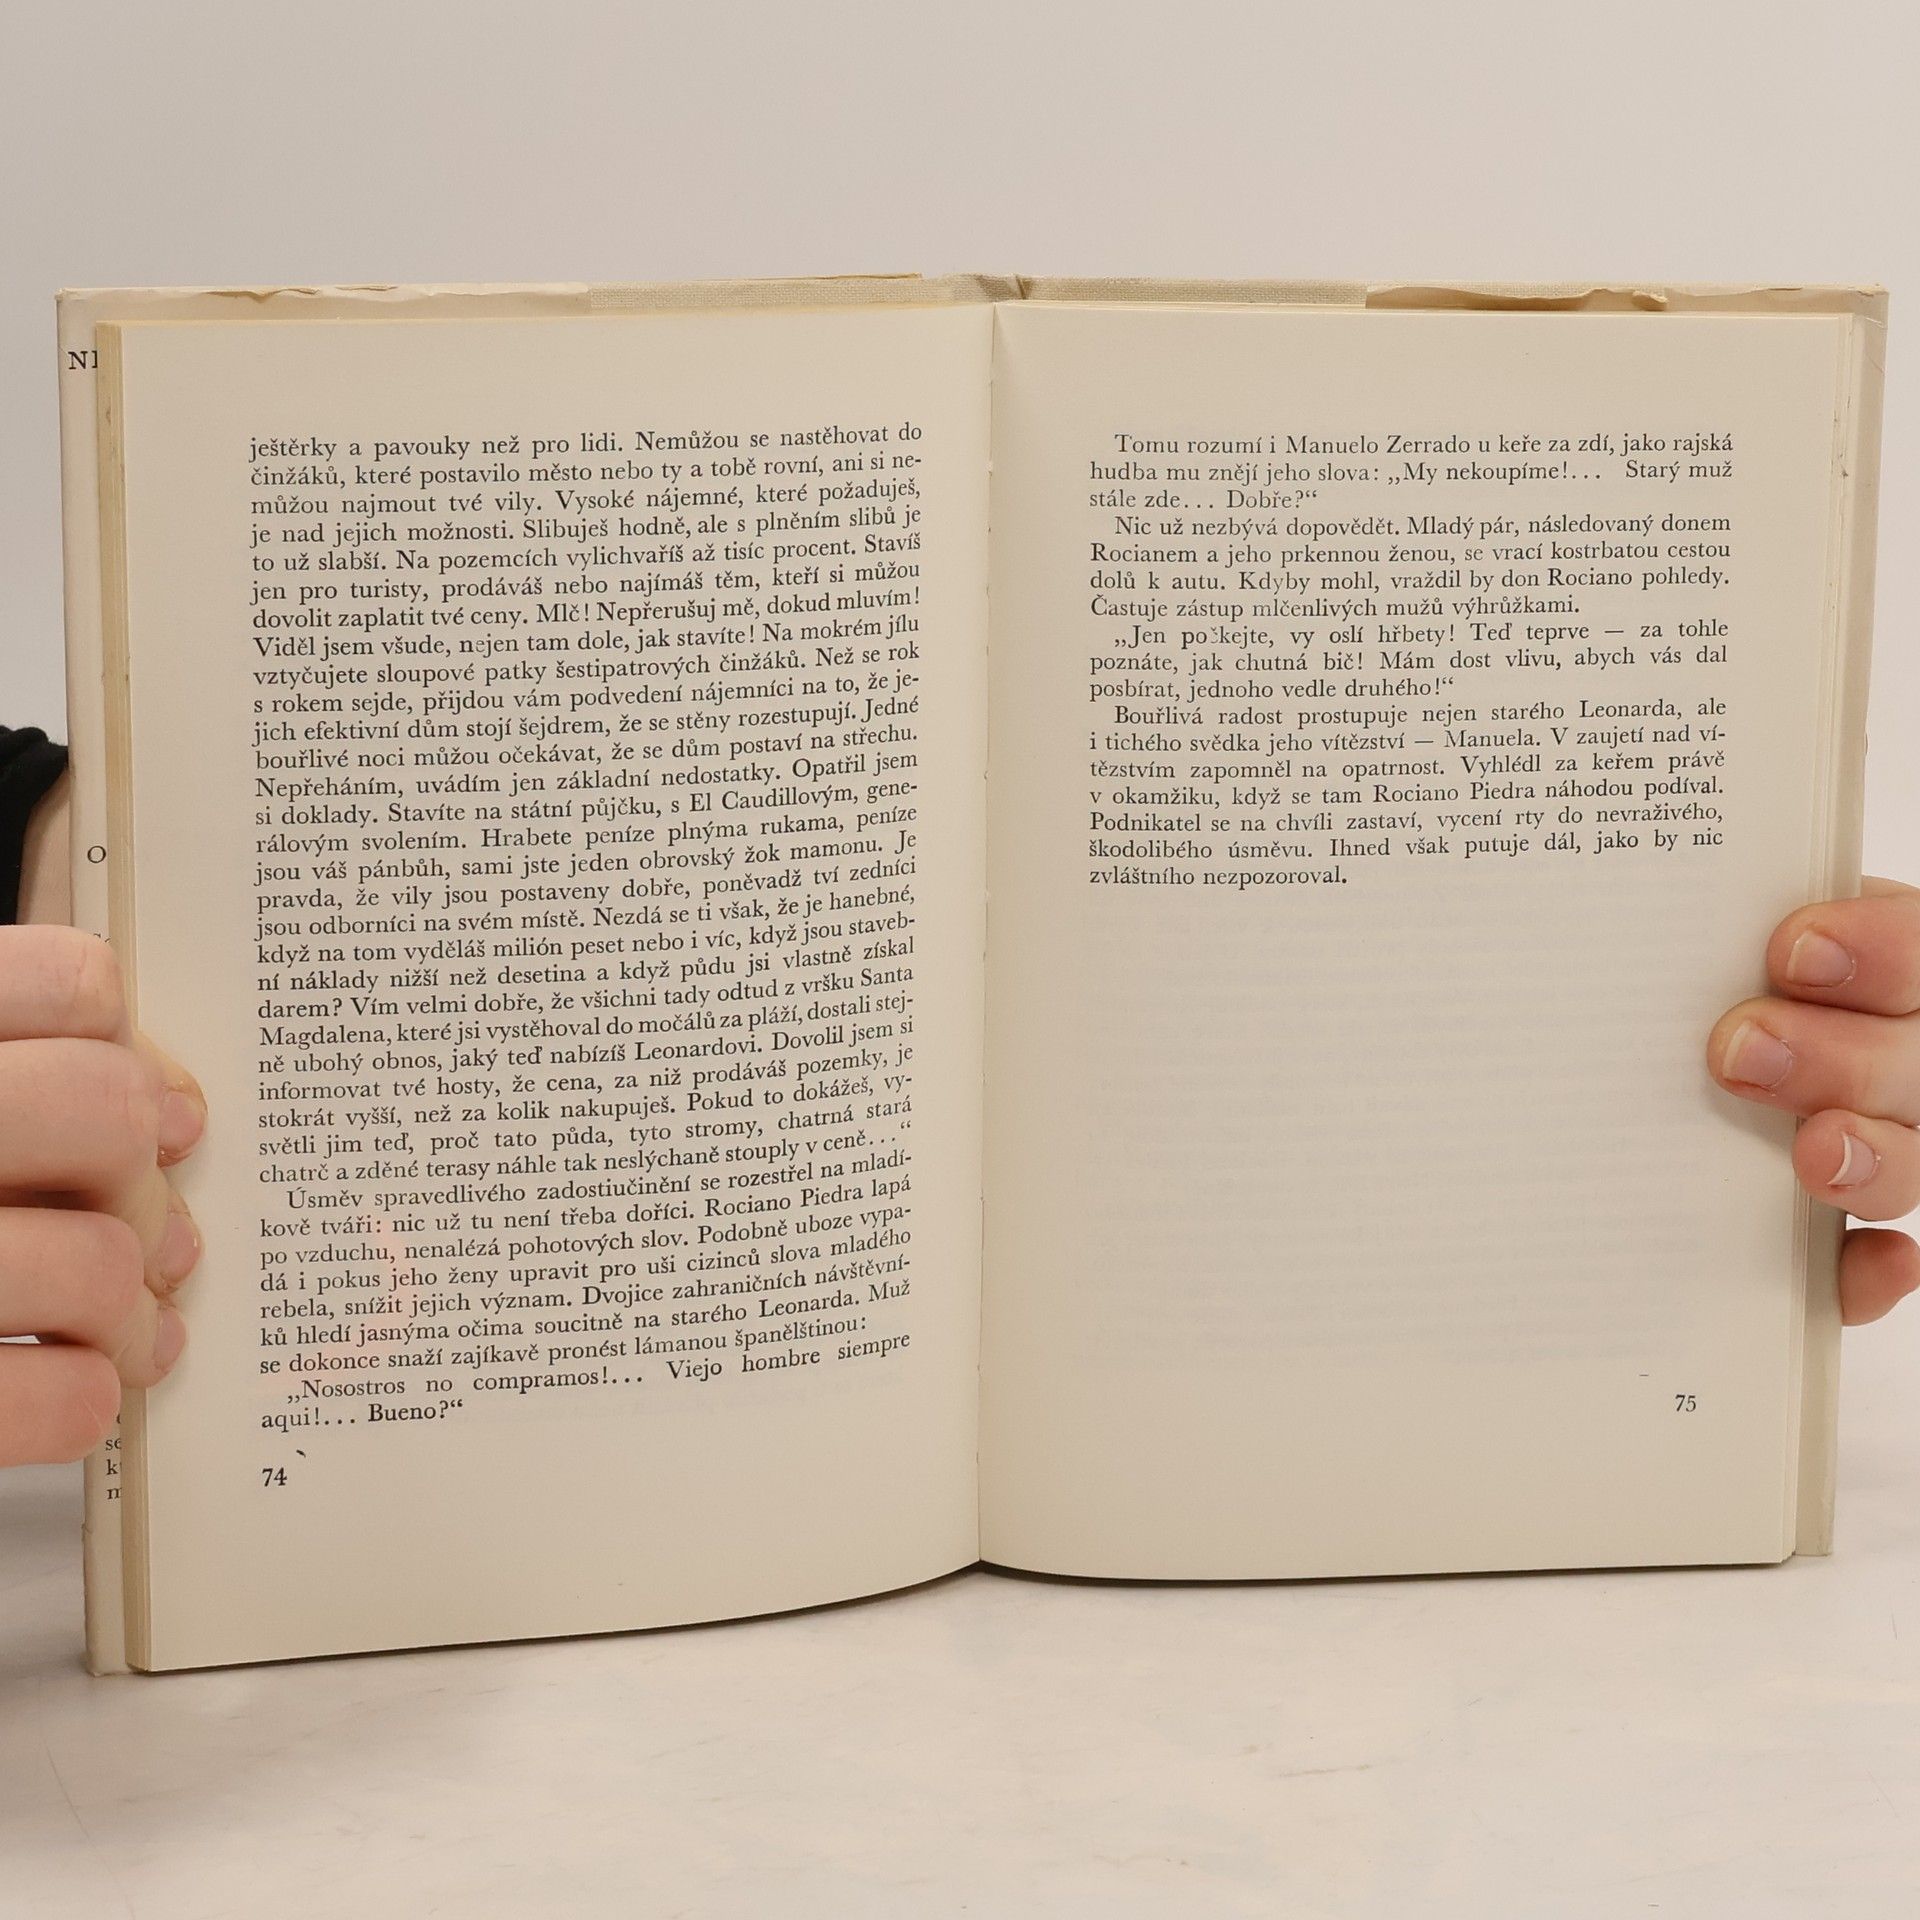 ještěrky a pavouky než pro lidi. Nemůžou se nastěhovat do
činžáků, které postavilo město nebo ty a tobě rovní, ani si ne-
můžou najmout tvé vily. Vysoké nájemné, které požaduješ,
je nad jejich možnosti. Slibuješ hodně, ale s plněním slibů je
to už slabší. Na pozemcích vylichvaříš až tisíc procent. Stavíš
jen pro turisty, prodáváš nebo najímáš těm, kteří si můžou
dovolit zaplatit tvé ceny. Mlč! Nepřerušuj mě, dokud mluvím!
Viděl jsem všude, nejen tam dole, jak stavíte! Na mokrém jílu
vztyčujete sloupové patky šestipatrových činžáků. Než se rok
s rokem sejde, přijdou vám podvedení nájemníci na to, že je-
jich efektivní dům stojí šejdrem, že se stěny rozestupují. Jedné
bouřlivé noci můžou očekávat, že se dům postaví na střechu.
Nepřeháním, uvádím jen základní nedostatky. Opatřil jsem
si doklady. Stavíte na státní půjčku, s El Caudillovým, gene-
rálovým svolením. Hrabete peníze plnýma rukama, peníze
jsou váš pánbůh, sami jste jeden obrovský žok mamonu. Je
pravda, že vily jsou postaveny dobře, poněvadž tví zedníci
jsou odborníci na svém místě. Nezdá se ti však, že je hanebné,
když na tom vyděláš milión peset nebo i víc, když jsou staveb-
ní náklady nižší než desetina a když půdu jsi vlastně získal
darem? Vím velmi dobře, že všichni tady odtud z vršku Santa
Magdalena, které jsi vystěhoval do močálů za pláží, dostali stej-
ně ubohý obnos, jaký teď nabízíš Leonardovi. Dovolil jsem si
informovat tvé hosty, že cena, za niž prodáváš pozemky, je
stokrát vyšší, než za kolik nakupuješ. Pokud to dokážeš, vy-
světli jim teď, proč tato půda, tyto stromy, chatrná stará
chatrč a zděné terasy náhle tak neslýchaně stouply v ceně...“
Úsměv spravedlivého zadostiučinění se rozestřel na mladí-
kově tváři: nic už tu není třeba doříci. Rociano Piedra lapá
po vzduchu, nenalézá pohotových slov. Podobně uboze vypa-
dá i pokus jeho ženy upravit pro uši cizinců slova mladého
rebela, snížit jejich význam. Dvojice zahraničních návštěvní-
ků hledí jasnýma očima soucitně na starého Leonarda. Muž
se dokonce snaží zajíkavě pronést lámanou španělštinou:
„Nosostros no compramos!... Viejo hombre siempre
aqui!... Bueno?“
74
Tomu rozumí i Manuelo Zerrado u keře za zdí, jako rajská
hudba mu znějí jeho slova: „My nekoupíme!... Starý muž
stále zde... Dobře?“
Nic už nezbývá dopovědět. Mladý pár, následovaný donem
Rocianem a jeho prkennou ženou, se vrací kostrbatou cestou
dolů k autu. Kdyby mohl, vraždil by don Rociano pohledy.
Častuje zástup mlčenlivých mužů výhrůžkami.
„Jen počkejte, vy oslí hřbety! Teď teprve — za tohle
poznáte, jak chutná bič! Mám dost vlivu, abych vás dal
posbírat, jednoho vedle druhého!“
Bouřlivá radost prostupuje nejen starého Leonarda, ale
i tichého svědka jeho vítězství — Manuela. V zaujetí nad ví-
tězstvím zapomněl na opatrnost. Vyhlédl za keřem právě
v okamžiku, když se tam Rociano Piedra náhodou podíval.
Podnikatel se na chvíli zastaví, vycení rty do nevraživého,
škodolibého úsměvu. Ihned však putuje dál, jako by nic
zvláštního nezpozoroval.
75